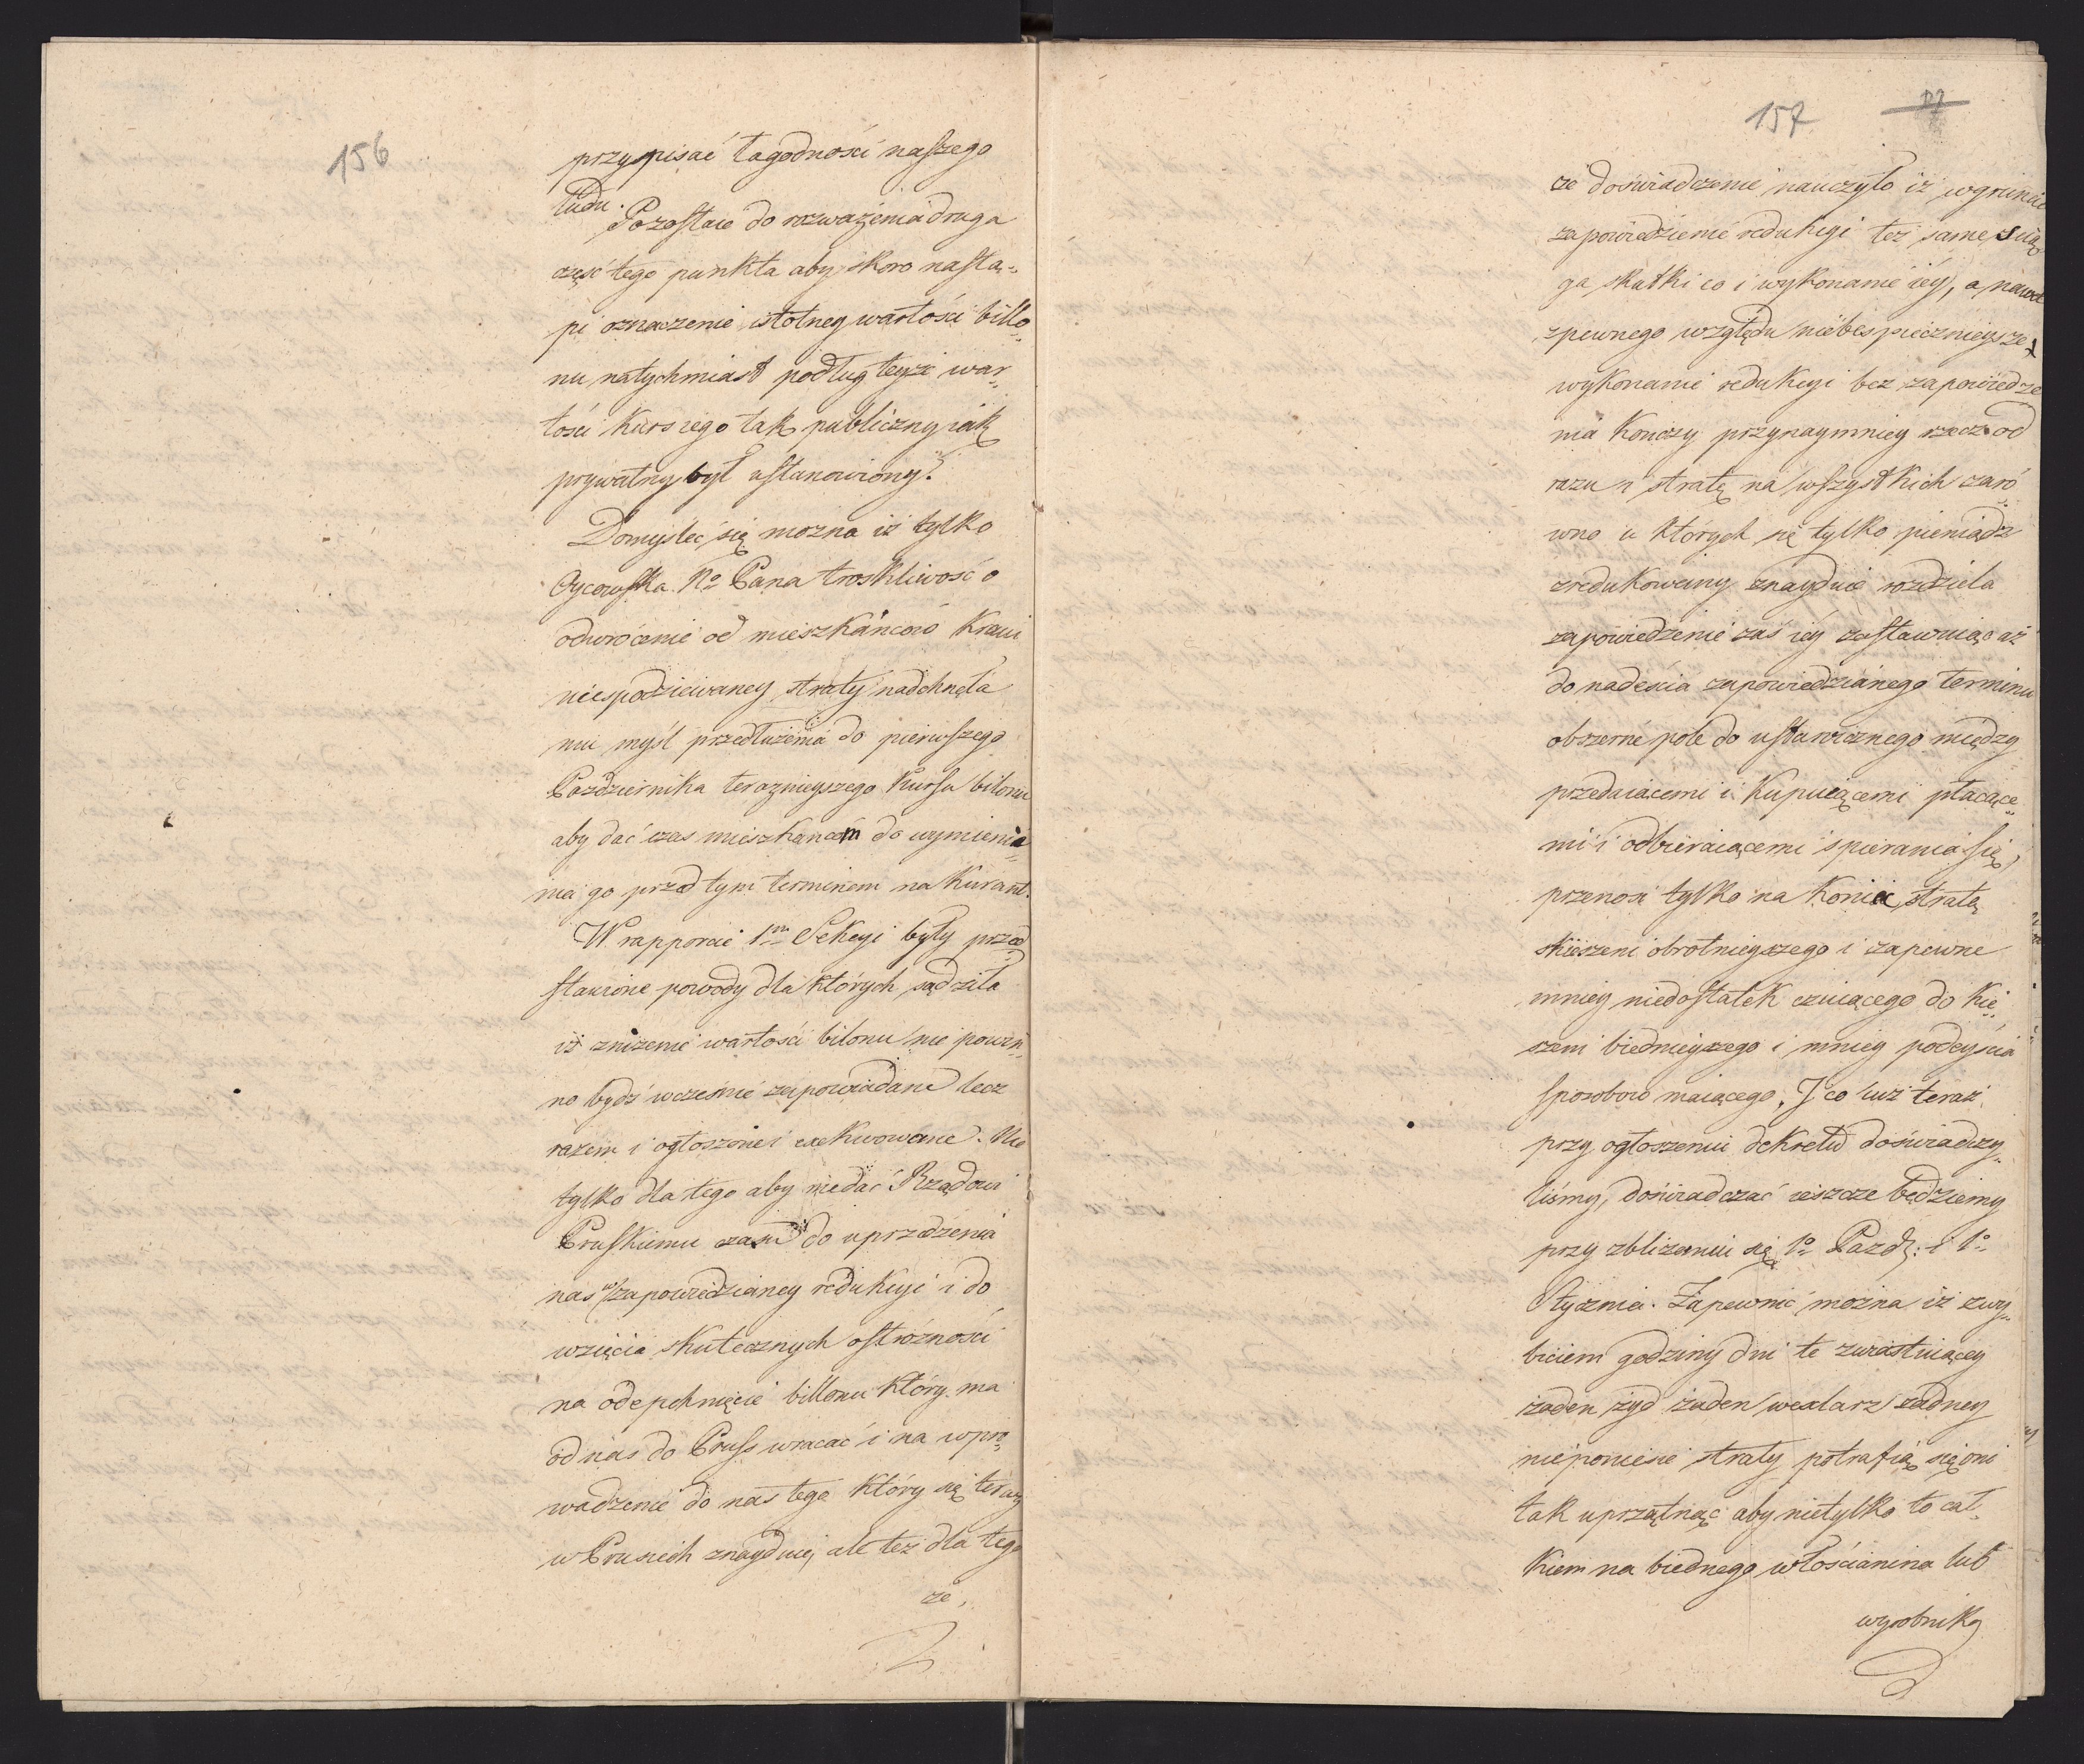 156
przypisać łagodności naszego
ludu.
Pozostaie do rozważenia druga
część tego punkta aby skoro nastą„
pi oznaczenie istotney wartości billo„
nu natychmiast podług teyże war„
tości kurs iego tak publiczny iak
prywatny był ustanowiony.
Domyslec się mozna iż tylko
Oycowska No Pana troskliwość o
odwrócenie od mieszkańców kraiu
niespodziewaney straty nadchnęła
mu myśl przedłużenia do pierwszego
Października terazniejszego kursu bilonu
aby dać czas mieszkańcom do wymienia„
nia go przed tym terminem na kurant.
W rapporcie 1m Sekcyi były przed„
stawione powody dla których sądziła
iż zniżenie wartości bilonu nie powin„
no bydź wcześnie zapowiadane lecz
razem i ogłoszone i exekwowane. Nie
tylko dla tego aby niedać Rządowi
Pruskiemu czasu do uprzedzenia
nas w zapowiedzianey redukcyi i do
wzięcia skutecznych ostrożności
na odepchnięcie billonu który ma
od nas do Pruss wracać i na wpro„
wadzenie do nas tego który się teraz
w Prusiech znayduie, ale też dla tego
że,
157
ze doświadczenie nauczyło iż wgruncie
zapowiedzienie redukcyi też same scią„
ga skutki co i wykonanie iey, a nawet
zpewnego względu niebespiecznieysze
wykonanie redukcyi bez zapowiedze
nia kończy przynaymniey rzecz od
razu i stratę na wszystkich zaró„
wno u których się tylko pieniądz
zredukowany znayduie rozdziela
zapowiedzenie zaś iey zostawuiąc aż
do nadeścia zapowiedzianego terminu
obszerne pole do ustawicznego między
przedaiącemi i kupuiącemi płacące„
mi i odbieraiącemi spierania się,
przenosi tylko na koniec stratę
skieszeni obrotnieyszego i zapewne
mniey niedostatek czuiącego do kie„
szeni biednieyszego i mniey podeyścia
sposobow maiącego. I co iuż teraz
przy ogłoszeniu dekretu doświadczy„
liśmy, doświadczać ieszcze będziemy
przy zbliżeniu się 1o Pazdz: i 1o
Stycznia. Zapewnić można iż zwy„
biciem godziny dni te zwiastuiącey
żaden żyd żaden wexlarz żadney
nieponiesie straty potrafią się oni
tak uprzątnąć aby nietylko to cał„
kiem na biednego włościanina lub
wyrobnika